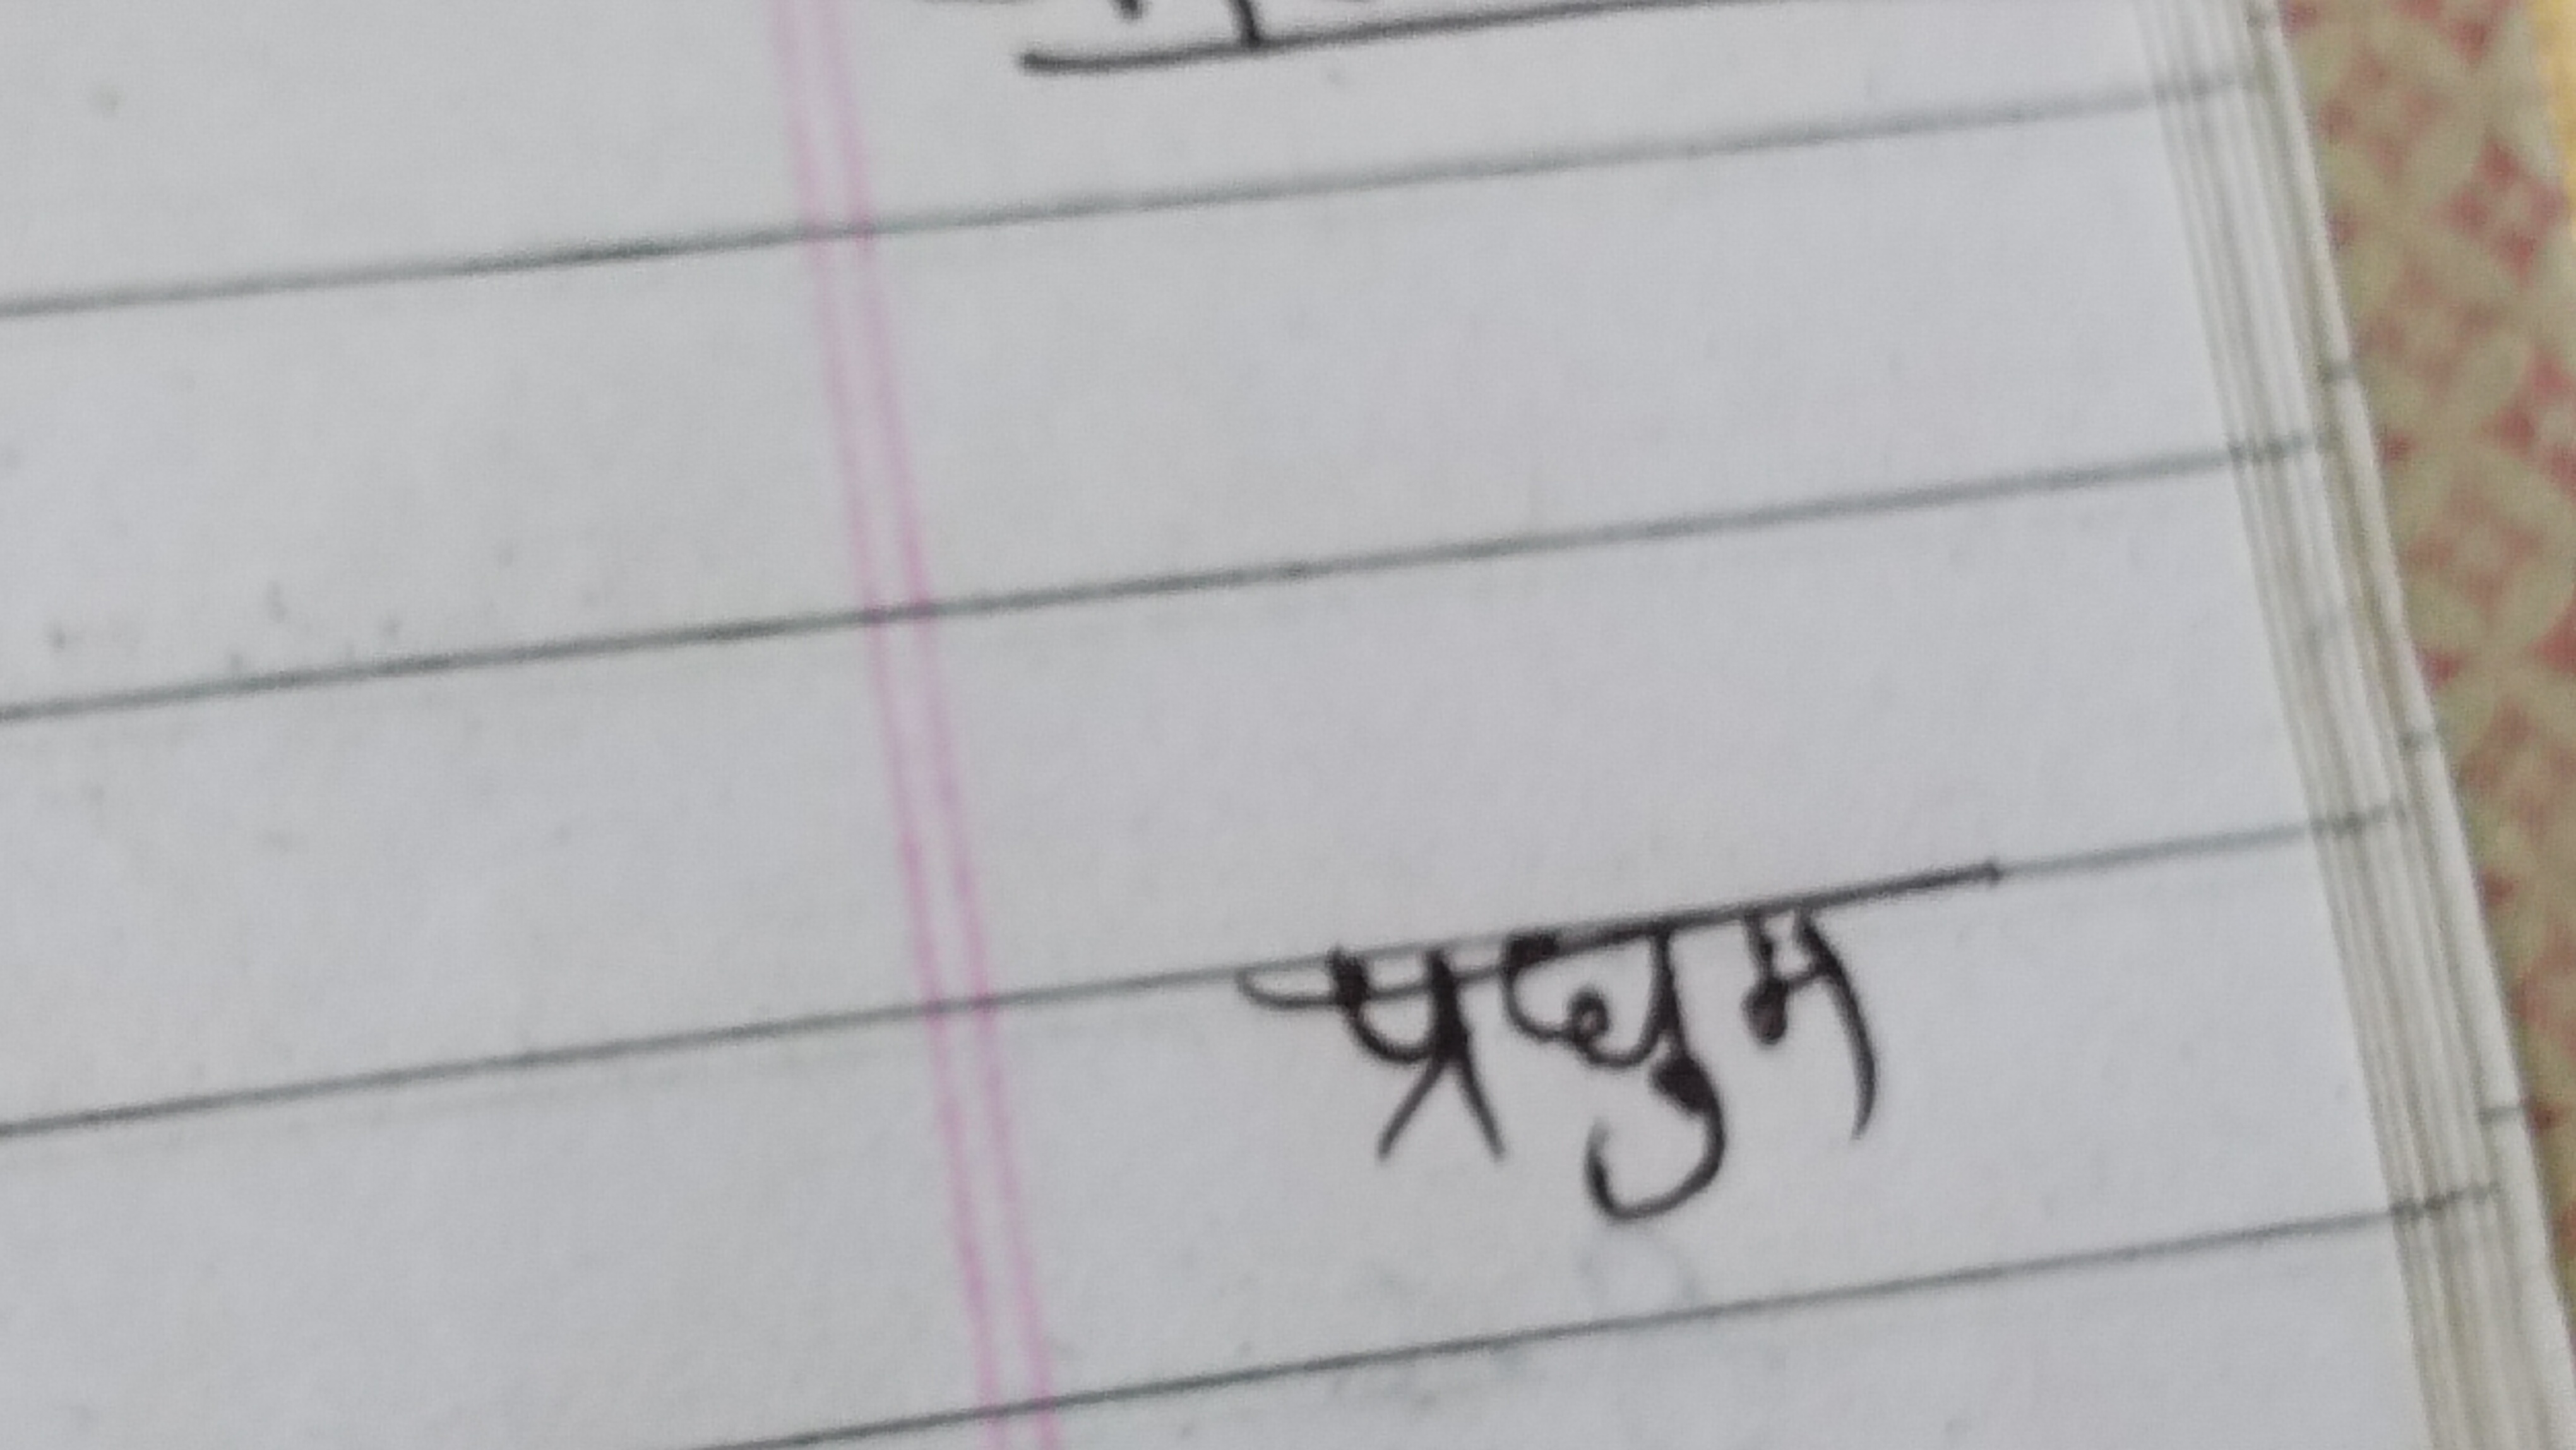 प्रद्युम